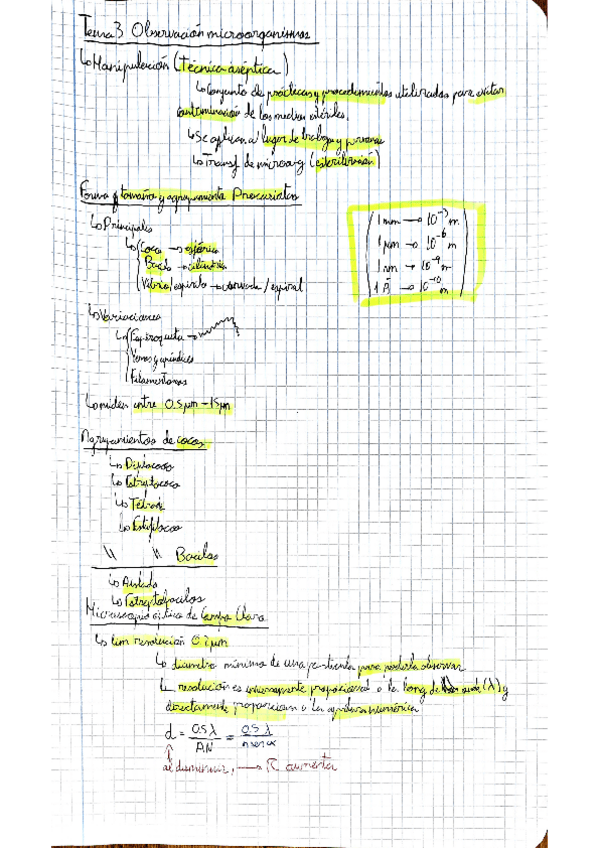 Tema 3 Observación microorganismos
↳ Manipulación (Técnica aséptica)
↳ Conjunto de prácticas y procedimientos utilizadas para evitar
contaminación de los medios estériles.
↳ Se aplican al lugar de trabajo y personas
↳ Transf de microorg (esterilización)
Forma y tamaño y agrupamiento Procariotas
↳ Principales
↳ Coco → esférico
Bacilo → cilíndrico
Vibrio/espirilo → curvada/espiral
1 mm → 10⁻³ m
1 µm → 10⁻⁶ m
1 nm → 10⁻⁹ m
1 Å → 10⁻¹⁰ m
↳ Variaciones
↳ Espiroqueta →
Yemas y apéndices
Filamentosas
↳ miden entre 0.5 µm - 15 µm
Agrupamientos de cocos
↳ Diplococo
↳ Estreptococo
↳ Tetrada
↳ Estafilococo
\\ \\ Bacilos
↳ Aislado
↳ Estreptobacilos
Microscopio óptico de Campo Claro
↳ lim resolución 0.2 µm
↳ diametro mínimo de una partícula para poderla observar
↳ resolución es inversamente proporcional a la long de onda (λ) y
directamente proporcional a la apertura numérica
d = 0.5 λ / A.N = 0.5 λ / n sen α
al disminuir, → R aumenta